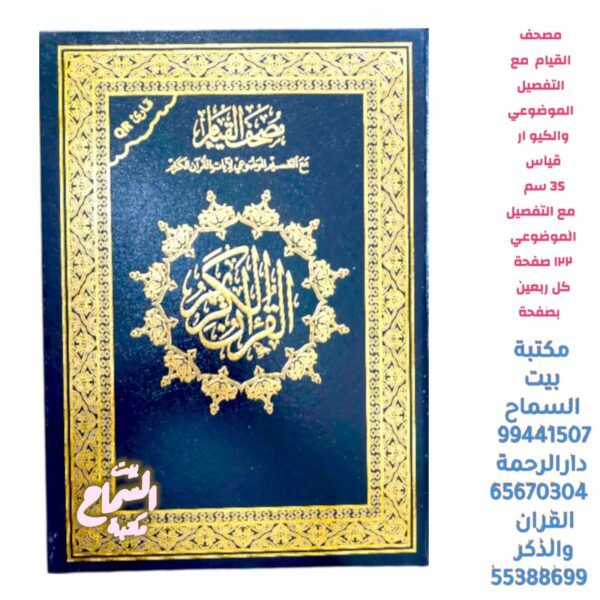 قارئ QR
مصحف القيام
مع التقسيم الموضوعي لآيات القرآن الكريم
القرآن الكريم
بيت
السماح
مكتبة
مصحف
القيام مع
التفصيل
الموضوعي
والكيو ار
قياس
35 سم
مع التفصيل
الموضوعي
١٢٢ صفحة
كل ربعين
بصفحة
مكتبة
بيت
السماح
99441507
دارالرحمة
65670304
القران
والذكر
55388699